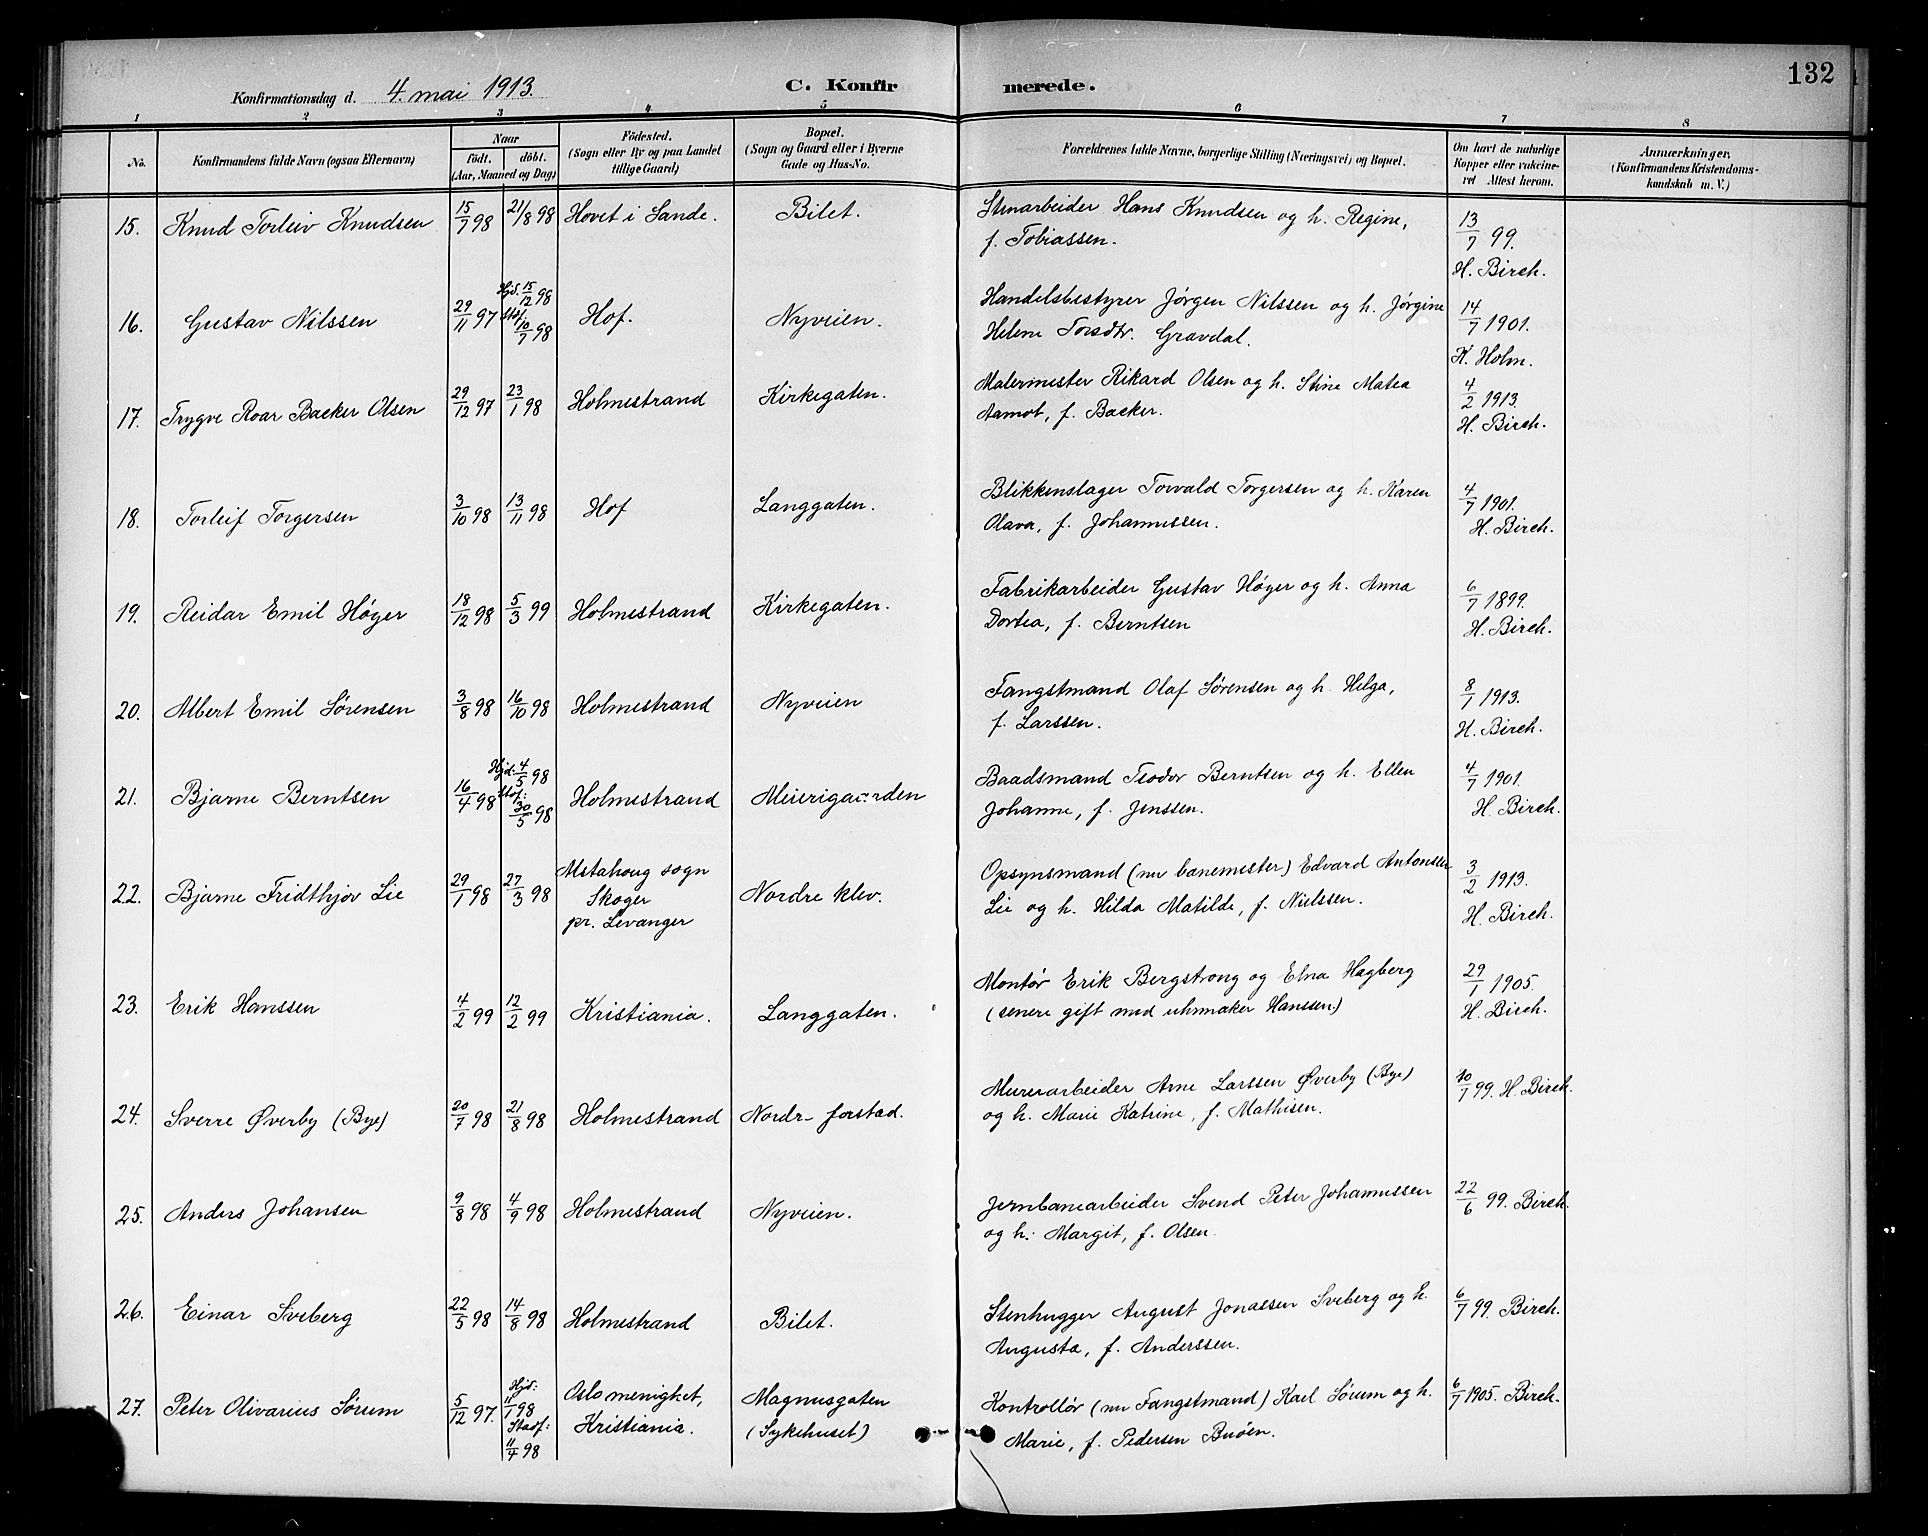 132
Konfirmationsdag d. 4. mai 1913. C. Konfirmerede.
1 2 3 4 5 6 7 8
No. Konfirmandens fulde Navn (ogsaa Efternavn) Naar födt. döbt. (Aar, Maaned og Dag) Födested. (Sogn eller By og paa Landet tillige Gaard) Bopæl. (Sogn og Gaard eller i Byerne Gade og Hus-No. Forældrenes fulde Navne, borgerlige Stilling (Næringsvei) og Bopæl. Om havt de naturlige Kopper eller vakcineret Attest herom. Anmærkninger, (Konfirmandens Kristendomskundskab m. V.)
15. Knud Torleiv Knudsen 15/7 98 21/8 98 Hovet i Sande. Bilet. Stenarbeider Hans Knudsen og h. Regine, 13/7 99.
f. Tobiassen. H. Birch.
16. Gustav Nilssen 29/11 97 Hjd. 15/12 98 Staf. 10/7 98 Hof. Nyveien. Handelsbestyrer Jørgen Nilssen og h. Jørgine 14/7 1901.
Helene Torsdtr. Gravdal. K. Holm.
17. Trygve Roar Backer Olsen 29/12 97 23/1 98 Holmestrand Kirkegaten. Malermester Rikard Olsen og h. Stine Matea 4/2 1913.
Aamot, f. Backer. H. Birch.
18. Torleif Torgersen 3/10 98 13/11 98 Hof Langgaten. Blikkenslager Torvald Torgersen og h. Karen 4/7 1901.
Olava, f. Johannessen. H. Birch.
19. Reidar Emil Høyer 18/12 98 5/3 99 Holmestrand Kirkegaten. Fabrikarbeider Gustav Høyer og h. Anna 6/7 1899.
Dortea, f. Berntsen H. Birch.
20. Albert Emil Sørensen 3/8 98 16/10 98 Holmestrand Nyveien Fangstmand Olaf Sørensen og h. Helga, 8/1 1913.
f. Larssen. H. Birch.
21. Bjarne Berntsen 16/4 98 Hjd: 4/5 98 Stof: 30/5 98 Holmestrand Meierigaarden Baadsmand Teodor Berntsen og h. Ellen 4/7 1901.
Johanne, f. Jenssen. H. Birch.
22. Bjarne Fridthjov Lie 29/1 98 27/3 98 Alstahoug sogn Skoger pr. Levanger Nordre klev. Opsynsmand (nu banemester) Edvard Antonsen 3/2 1913.
Lie og h. Hilda Matilde, f. Nielssen. H. Birch.
23. Erik Hanssen 4/2 99 12/2 99 Kristiania. Langgaten. Montør Erik Bergstrøng og Elna Hagberg 29/1 1905.
(senere gift med uhrmaker Hanssen.) H. Birch.
24. Sverre Øverby (Bye) 20/7 98 21/8 98 Holmestrand Nordre forstad. Murerarbeider Arne Larssen Øverby (Bye) 10/7 99. H. Birch.
og h. Marie Katrine, f. Mathisen.
25. Anders Johansen 9/8 98 4/9 98 Holmestrand Nyveien. Jernbanearbeider Svend Peter Johannessen 22/6 99. Birch.
og h. Margit, f. Olsen.
26. Einar Sveberg 22/5 98 14/8 98 Holmestrand Bilet. Stenhugger August Jonassen Sveberg og h. 6/7 99. Birch.
Augusta, f. Anderssen.
27. Peter Olivarius Sørum 5/12 97. Hjd: 11/1 98 Stadf: 11/4 98 Oslo menighet, Kristiania. Magnusgaten (Sykehuset) Kontrollør (nu Fangstmand) Karl Sørum og h. 6/7 1905. Birch.
Marie, f. Pedersen Buøen.